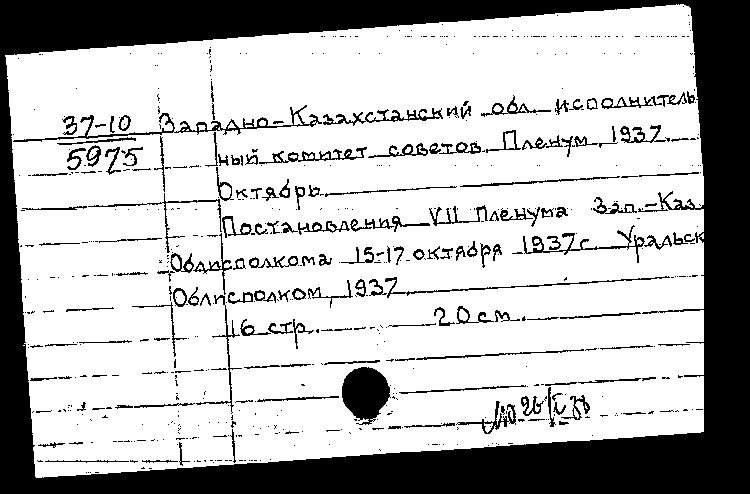 37-10
5975
Западно-Казахстанский обл. исполнитель
ный комитет советов. Пленум, 1937.
Октябрь.
Постановления VII Пленума Зап.-Каз.
Облисполкома 15-17 октября 1937 г. Уральск
Облисполком, 1937.
16 стр. 20 см.
26/I